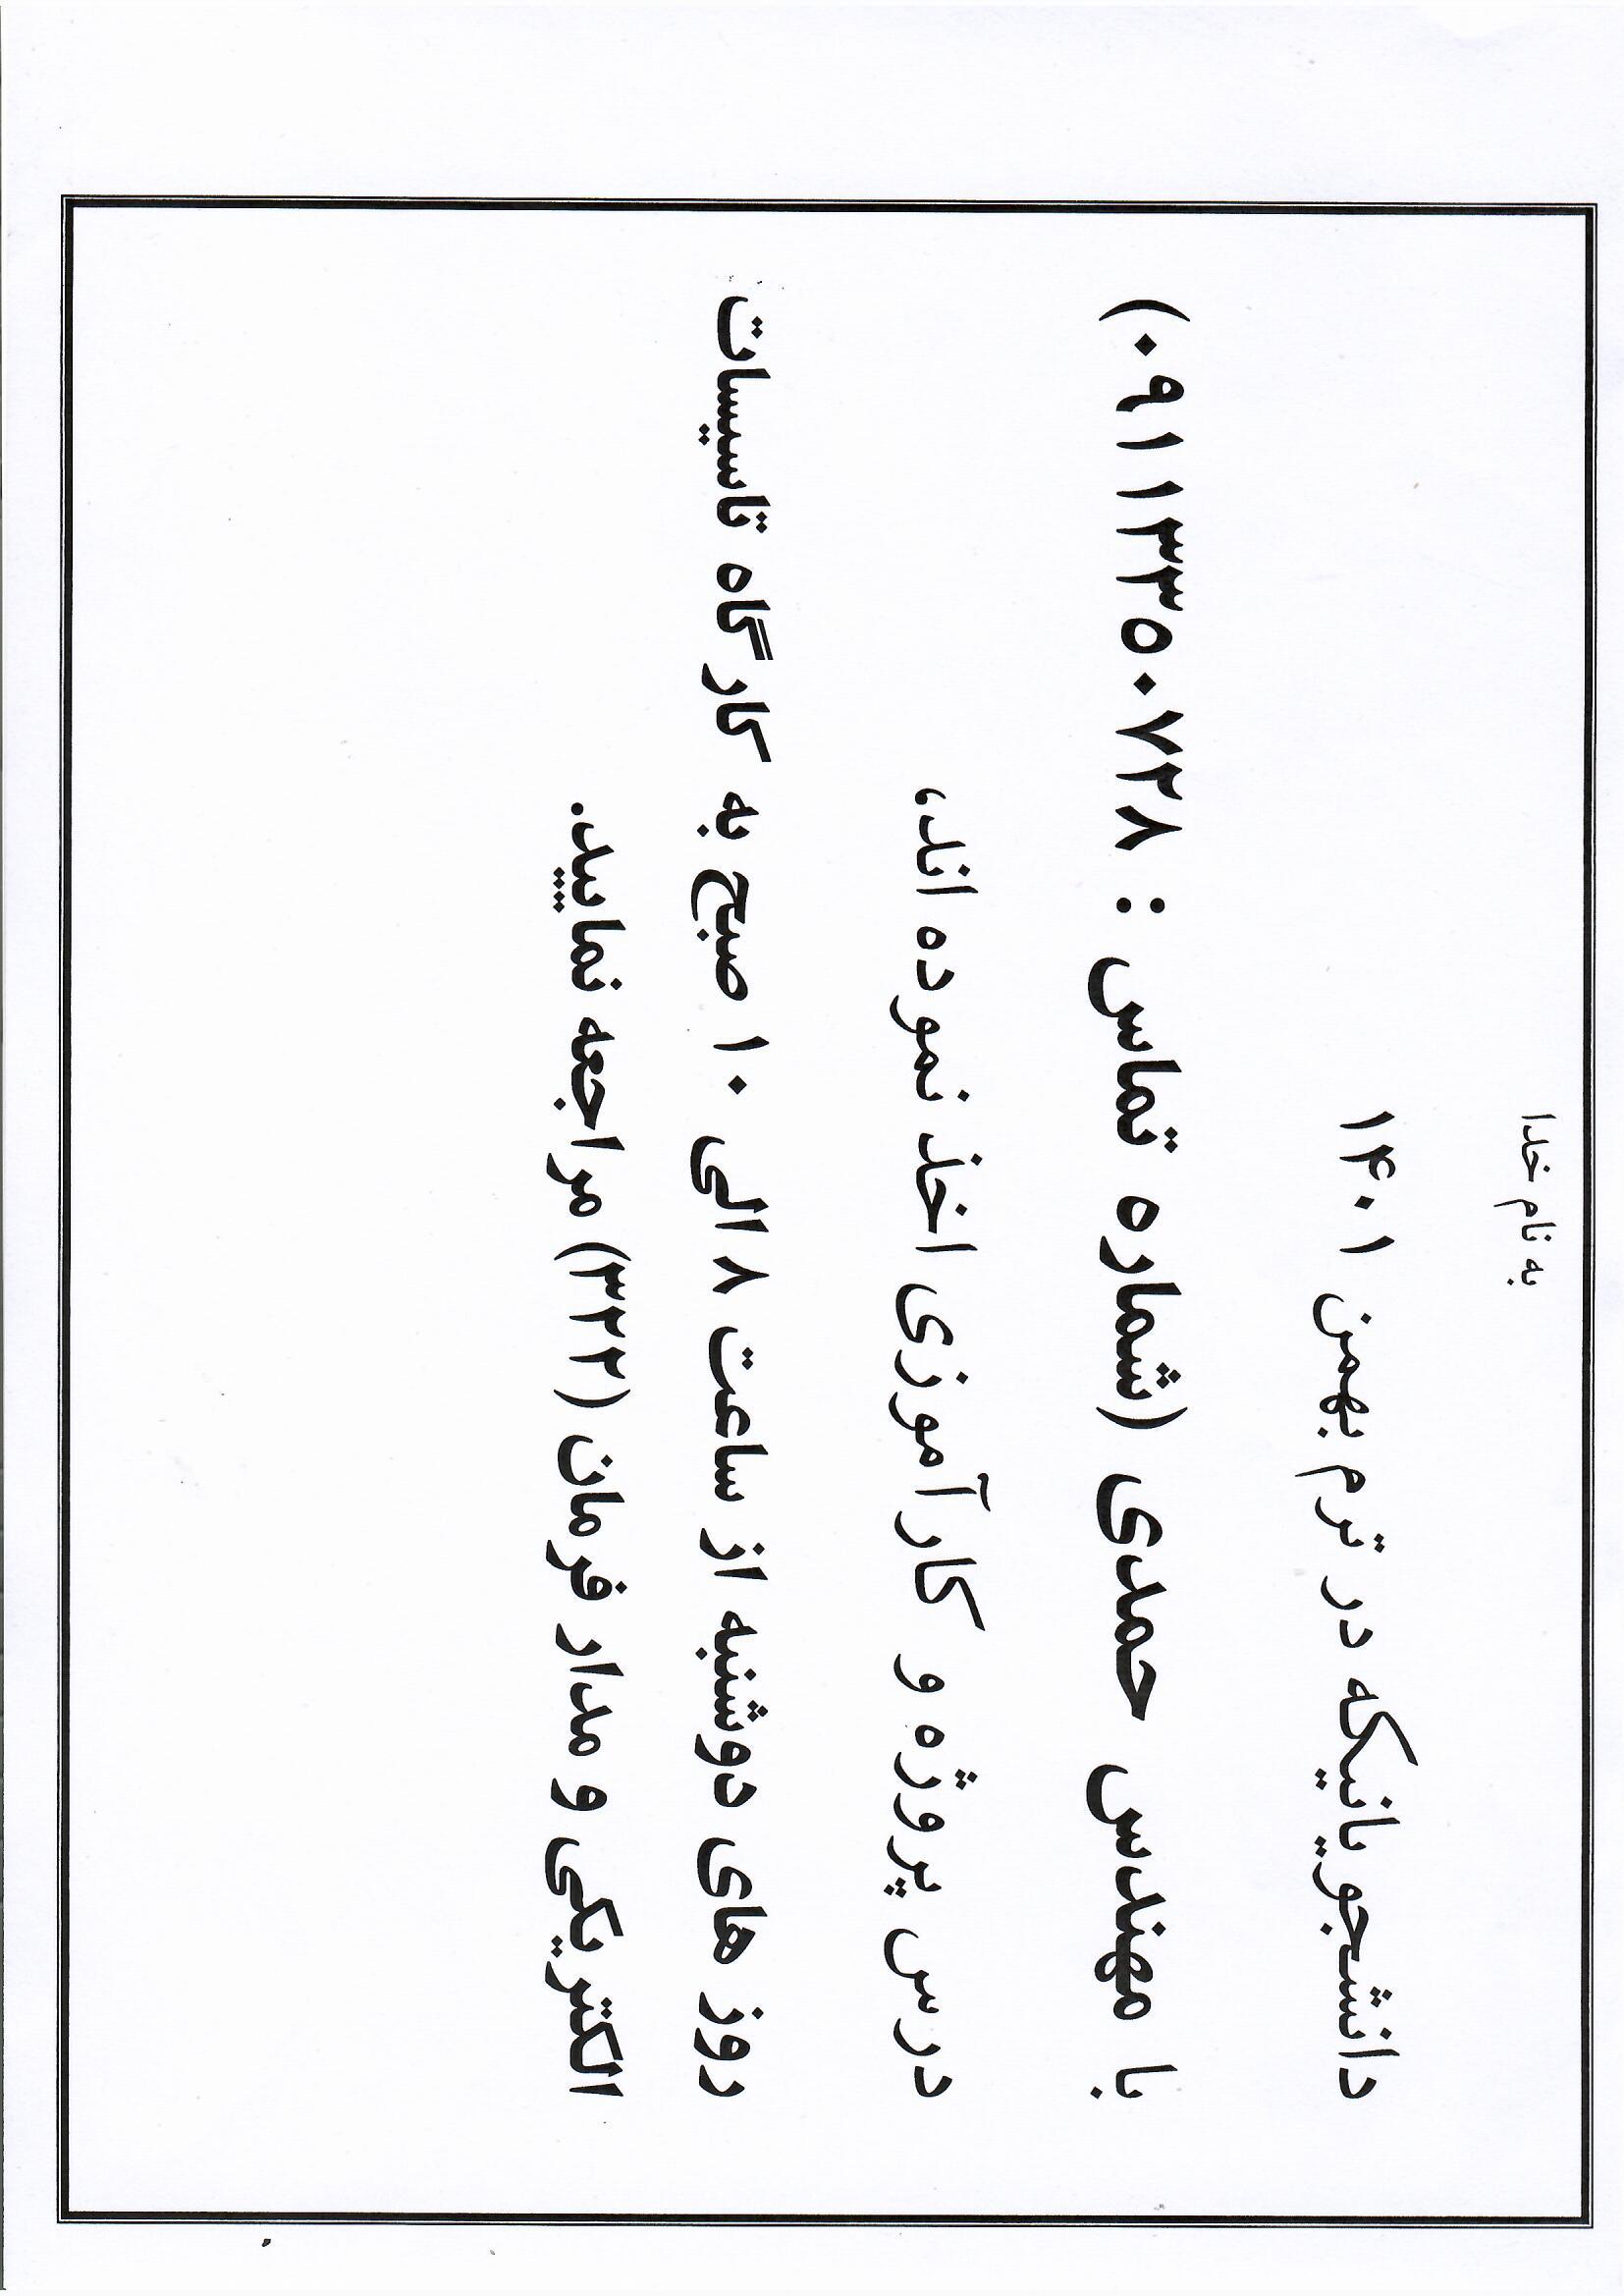 به نام خدا
دانشجویانیکه در ترم بهمن ۱۴۰۱
با مهندس حمدی (شماره تماس : ۰۹۱۱۳۳۵۰۷۲۸)
درس پروژه و کارآموزی اخذ نموده اند،
روز های دوشنبه از ساعت ۸ الی ۱۰ صبح به کارگاه تاسیسات
الکتریکی و مدار فرمان (۳۲۲) مراجعه نمایید.